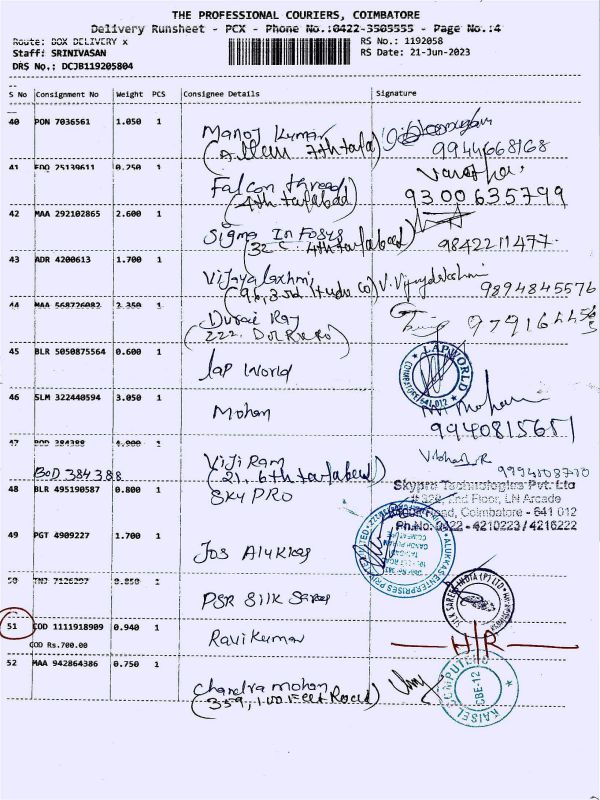 THE PROFESSIONAL COURIERS, COIMBATORE
Delivery Runsheet - PCX - Phone No.:0422-3505555 - Page No.:4
Route: BOX DELIVERY x
RS No.: 1192058
Staff: SRINIVASAN
RS Date: 21-Jun-2023
DRS No.: DCJB119205804
S No Consignment No Weight PCS Consignee Details Signature
40 PON 7036561 1.050 1
Manoj Kumar
(Allem 7th tafa)
9944668168
41 EDQ 75139611 0.250 1
Falcon thread
(4th tatabad)
9300635799
42 MAA 292102865 2.600 1
Sigma In Fosys
(32 C 4th tatabad)
9842211477
43 ADR 4200613 1.700 1
Vijaya laxhmi
(96, 3rd Co) V. Vijayalakshmi
9894845576
44 MAA 568726082 2.350 1
Durai Raj
(222,
45 BLR 5050875564 0.600 1
lap World
LAPWORLD
641 012
46 SLM 322440594 3.050 1
Mohan
9940815651
47 BOD 384388 4.000 1
BOD 384388
Viji Ram
(21, 6th tatabad)
48 BLR 495190587 0.800 1
SKY PRO
Skypro Technologies Pvt. Ltd
2nd Floor, LN Arcade
Road, Coimbatore - 641 012
Ph.No: 0422 - 4210223 / 4216222
49 PGT 4909227 1.700 1
Jos Alukkas
ALUKKAS ENTERPRISES PRIVATE LIMITED
50 TNJ 7126297 0.850 1
PSR Silk Sarees
SILK SAREES INDIA (P) LTD
51 COD 1111918909 0.940 1
COD Rs.700.00
Ravi Kumar
H/R
52 MAA 942864386 0.750 1
Chandra Mohan
(359, 100 Feet Road)
CBE-12
KAISEL COMPUTERS